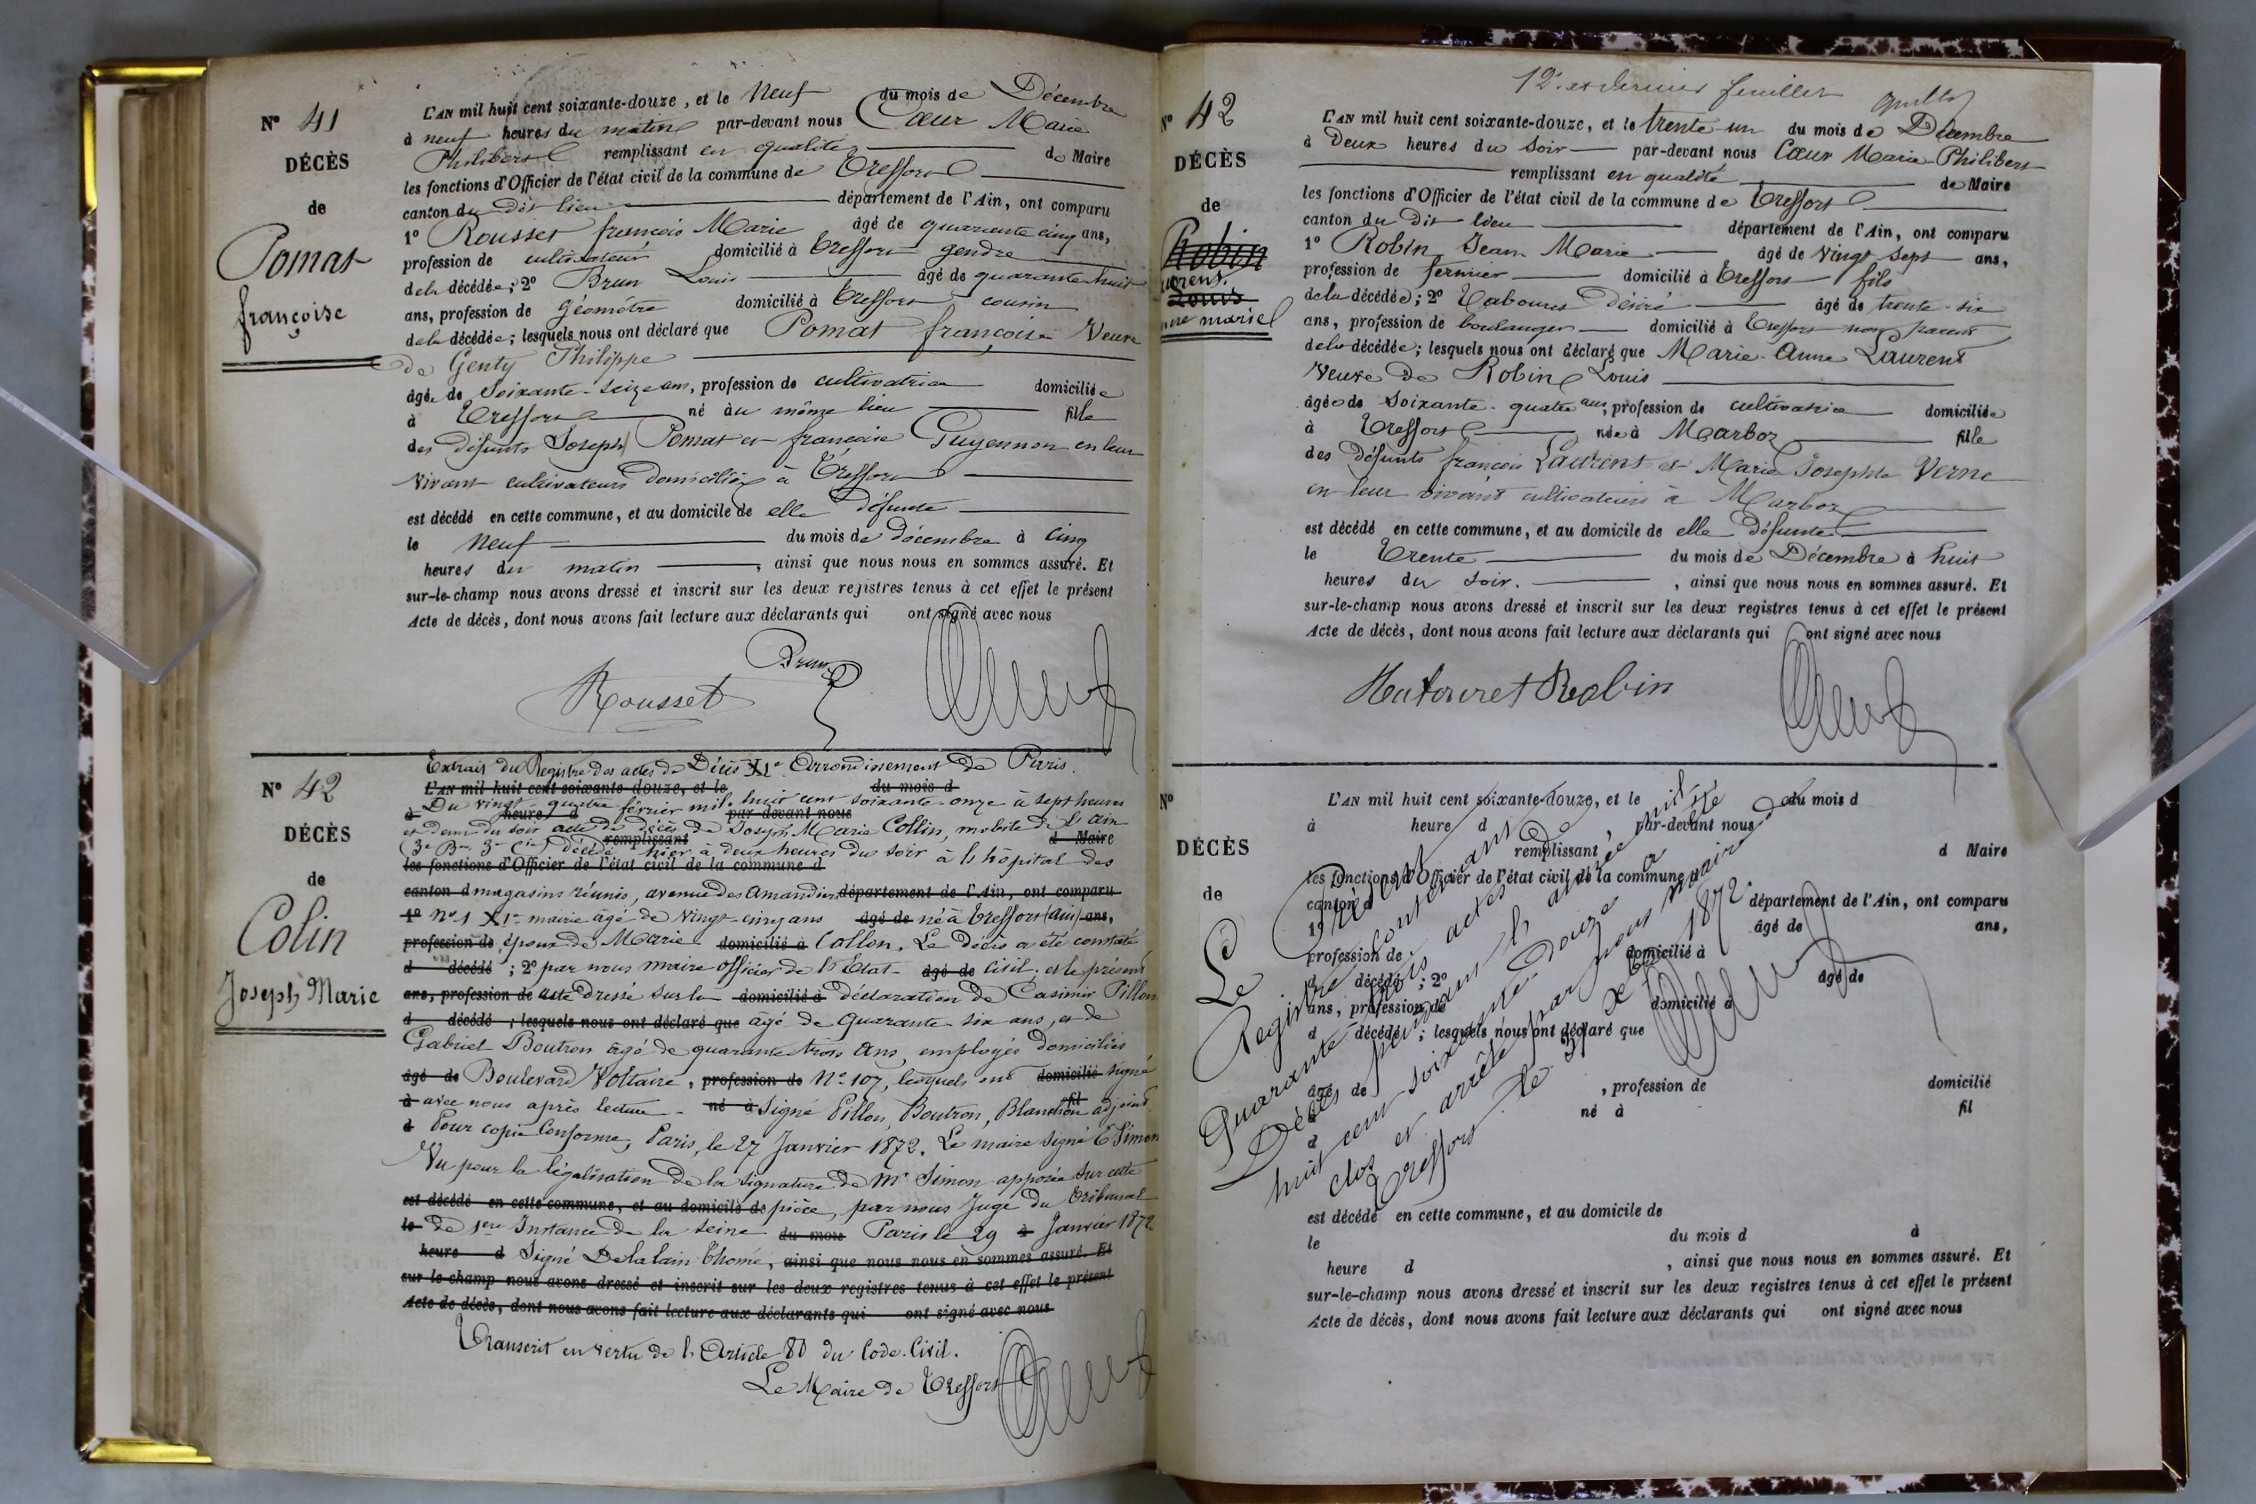 N° 41
DÉCÈS
de
Pomat
françoise
L'AN mil huit cent soixante-douze, et le Neuf du mois de Décembre
à neuf heures du matin par-devant nous Cœur Marie
Philibert remplissant en qualité de Maire
les fonctions d'Officier de l'état civil de la commune de Treffort
canton du dit lieu département de l'Ain, ont comparu
1° Rousset françois Marie âgé de quarante cinq ans,
profession de cultivateur domicilié à Treffort gendre
de la décédée; 2° Brun Louis âgé de quarante-huit
ans, profession de Géomètre domicilié à Treffort cousin
de la décédée; lesquels nous ont déclaré que Pomat françoise Veuve
de Genty Philippe
âgée de Soixante-seize ans, profession de cultivatrice domiciliée
à Treffort né àu même lieu fille
des défunts Joseph Pomat et françoise Puyennon en leur
vivant cultivateurs domiciliés à Treffort
est décédé en cette commune, et au domicile de elle défunte
le Neuf du mois de décembre à cinq
heures du matin, ainsi que nous nous en sommes assuré. Et
sur-le-champ nous avons dressé et inscrit sur les deux registres tenus à cet effet le présent
Acte de décès, dont nous avons fait lecture aux déclarants qui ont signé avec nous
Brun
Rousset
N° 42
DÉCÈS
de
Colin
Joseph Marie
Extrait du Registre des actes de Décès XIe Arrondissement de Paris.
L'AN mil huit cent soixante-douze, et le du mois d
Du vingt quatre février mil huit cent soixante-onze à sept heures
à heures d par-devant nous
et demi du soir acte de décès de Joseph Marie Collin, mobile de l'Ain
remplissant d Maire
(3e Bon, 3e Cie) décédé hier à deux heures du soir à l'hôpital des
les fonctions d'Officier de l'état civil de la commune d
canton d magasins réunis, avenue des Amandiers département de l'Ain, ont comparu
1° N° 1 XIe mairie âgé de vingt-cinq ans âgé de né à Treffort (Ain) ans,
profession de époux de Marie domicilié à Collon. Le décès a été constaté
d décédé ; 2° par nous maire officier de l'Etat âgé de Civil, et le présent
ans, profession de acte dressé sur la domicilié à déclaration de Casimir Pillon
d décédé ; lesquels nous ont déclaré que âgé de Quarante-six ans, et de
Gabriel Boutron âgé de quarante trois ans, employés domiciliés
âgé de Boulevard Voltaire, profession de N° 107, lesquels ont domicilié signé
à avec nous après lecture né à Signé Pillon, Boutron, Blanchon fil adjoint.
d Pour copie conforme, Paris, le 27 Janvier 1872. Le maire signé E Simon
Vu pour la légalisation de la signature de Mr Simon apposée sur cette
est décédé en cette commune, et au domicile de pièce, par nous Juge du Tribunal
le de 1ere Instance de la Seine du mois Paris le 29 à Janvier 1872
heure d Signé Delalain Chomé, ainsi que nous nous en sommes assuré. Et
sur-le-champ nous avons dressé et inscrit sur les deux registres tenus à cet effet le présent
Acte de décès, dont nous avons fait lecture aux déclarants qui ont signé avec nous
Transcrit en vertu de l'Article 80 du Code Civil.
Le Maire de Treffort
12e et dernier feuillet
N° 42
DÉCÈS
de
Robin
Laurent
Louis
Anne marie
L'AN mil huit cent soixante-douze, et le trente-un du mois de Décembre
à Deux heures du Soir par-devant nous Cœur Marie Philibert
remplissant en qualité de Maire
les fonctions d'Officier de l'état civil de la commune de Treffort
canton du dit lieu département de l'Ain, ont comparu
1° Robin Jean Marie âgé de Vingt sept ans,
profession de fermier domicilié à Treffort fils
de la décédée; 2° Tabouret désiré âgé de trente-six
ans, profession de boulanger domicilié à Treffort non parent
de la décédée; lesquels nous ont déclaré que Marie-Anne Laurent
Veuve de Robin Louis
âgée de Soixante-quatre ans, profession de cultivatrice domiciliée
à Treffort née à Marboz fille
des défunts françois Laurent et Marie Josephte Verne
en leur vivant cultivateurs à Marboz
est décédé en cette commune, et au domicile de elle défunte
le Trente du mois de Décembre à huit
heures du soir., ainsi que nous nous en sommes assuré. Et
sur-le-champ nous avons dressé et inscrit sur les deux registres tenus à cet effet le présent
Acte de décès, dont nous avons fait lecture aux déclarants qui ont signé avec nous
Robin
N°
DÉCÈS
de
L'AN mil huit cent soixante-douze, et le du mois d
à heure d par-devant nous
remplissant d Maire
les fonctions d'Officier de l'état civil de la commune d
canton d département de l'Ain, ont comparu
1° âgé de ans,
profession de domicilié à
d décédé ; 2° âgé de
ans, profession de domicilié à
d décédé ; lesquels nous ont déclaré que
âgé de , profession de domicilié
à né à fil
d
est décédé en cette commune, et au domicile de
le du mois d à
heure d , ainsi que nous nous en sommes assuré. Et
sur-le-champ nous avons dressé et inscrit sur les deux registres tenus à cet effet le présent
Acte de décès, dont nous avons fait lecture aux déclarants qui ont signé avec nous
Le Présent
Registre contenant
Quarante trois actes de
Décès pendant l'année mil
huit cent soixante douze a été
clos et arrêté par nous maire de
Treffort le 31 Xbre 1872